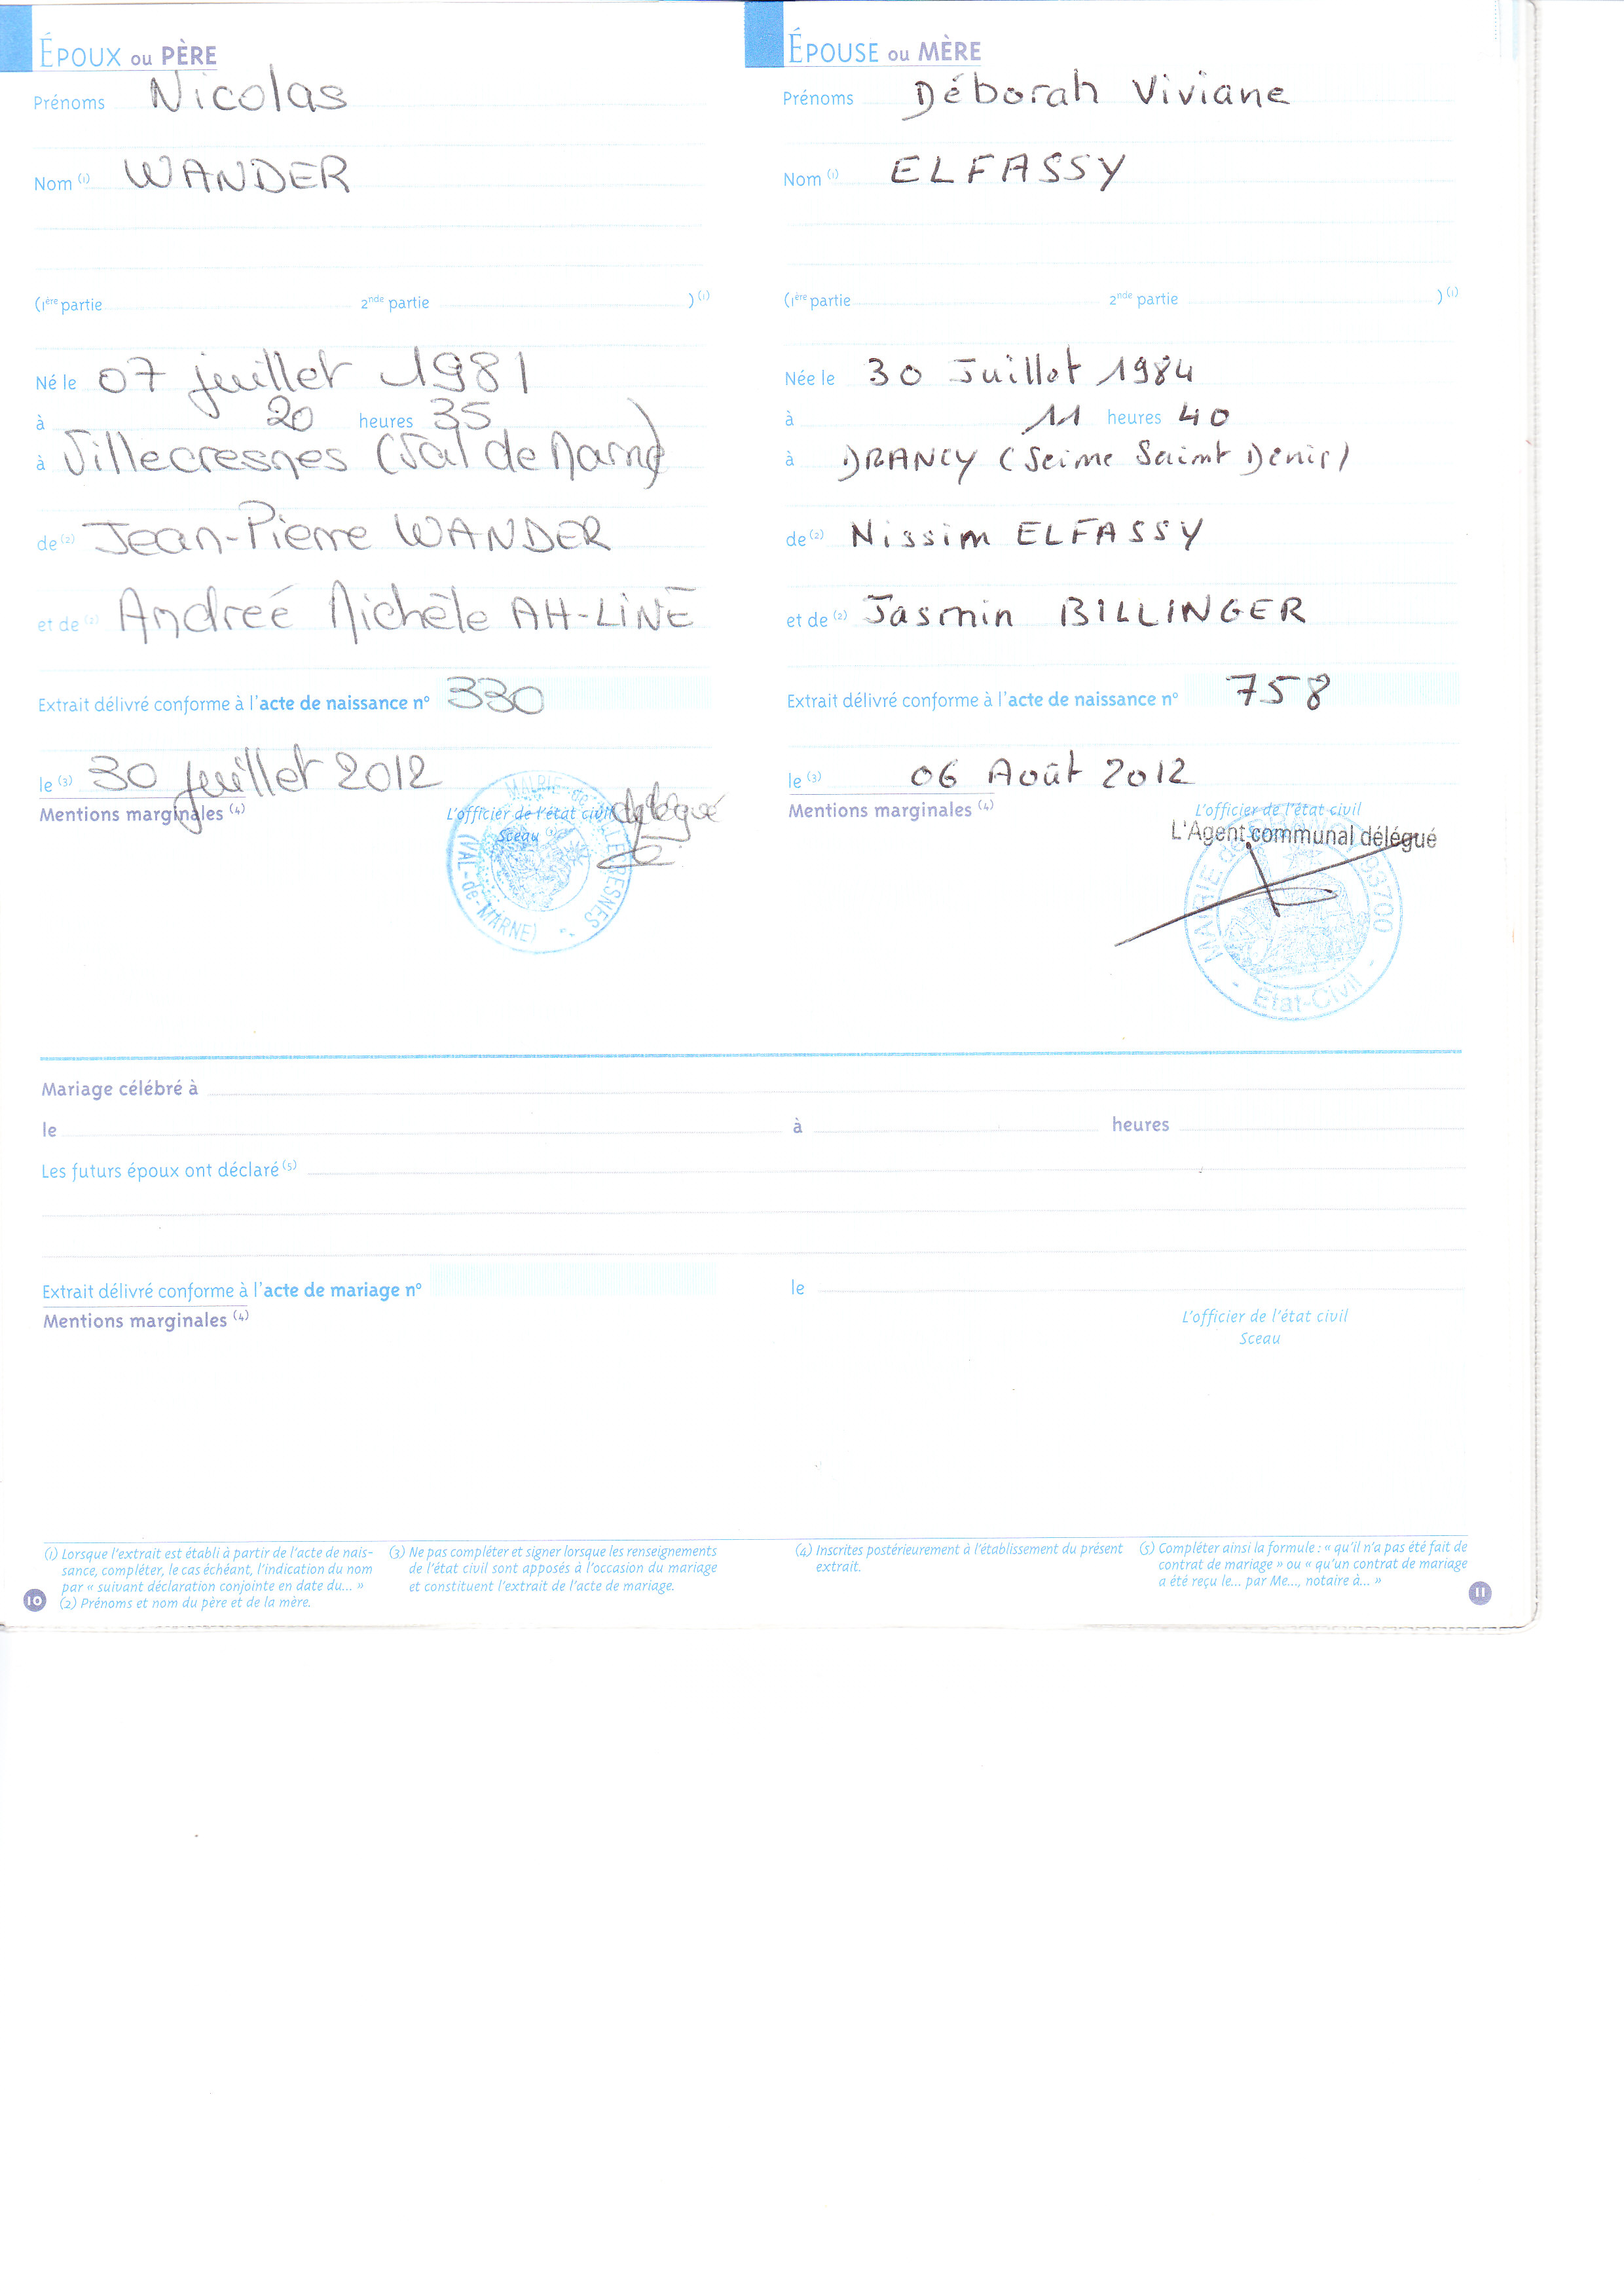 ÉPOUX OU PÈRE
Prénoms Nicolas
Nom (1) WANDER
(1ère partie 2nde partie ) (1)
Né le 07 juillet 1981
à 20 heures 35
à Villecresnes (Val de Marne)
de (2) Jean-Pierre WANDER
et de (2) Andreé Michèle AH-LINE
Extrait délivré conforme à l'acte de naissance n° 330
le (3) 30 juillet 2012
Mentions marginales (4)
L'officier de l'état civil délégué
Sceau
MAIRIE de VILLECRESNES
(VAL-de-MARNE)
ÉPOUSE OU MÈRE
Prénoms Déborah Viviane
Nom (1) ELFASSY
(1ère partie 2nde partie ) (1)
Née le 30 Juillet 1984
à 11 heures 40
à DRANCY (Seine Saint Denis)
de (2) Nissim ELFASSY
et de (2) Jasmin BILLINGER
Extrait délivré conforme à l'acte de naissance n° 758
le (3) 06 Août 2012
Mentions marginales (4)
L'officier de l'état civil
L'Agent communal délégué
MAIRIE de DRANCY 93700
- Etat-Civil -
Mariage célébré à
le à heures
Les futurs époux ont déclaré (5)
Extrait délivré conforme à l'acte de mariage n° le
Mentions marginales (4)
L'officier de l'état civil
Sceau
(1) Lorsque l'extrait est établi à partir de l'acte de nais-
sance, compléter, le cas échéant, l'indication du nom
par « suivant déclaration conjointe en date du... »
(2) Prénoms et nom du père et de la mère.
(3) Ne pas compléter et signer lorsque les renseignements
de l'état civil sont apposés à l'occasion du mariage
et constituent l'extrait de l'acte de mariage.
(4) Inscrites postérieurement à l'établissement du présent
extrait.
(5) Compléter ainsi la formule : « qu'il n'a pas été fait de
contrat de mariage » ou « qu'un contrat de mariage
a été reçu le... par Me..., notaire à... »
10
11